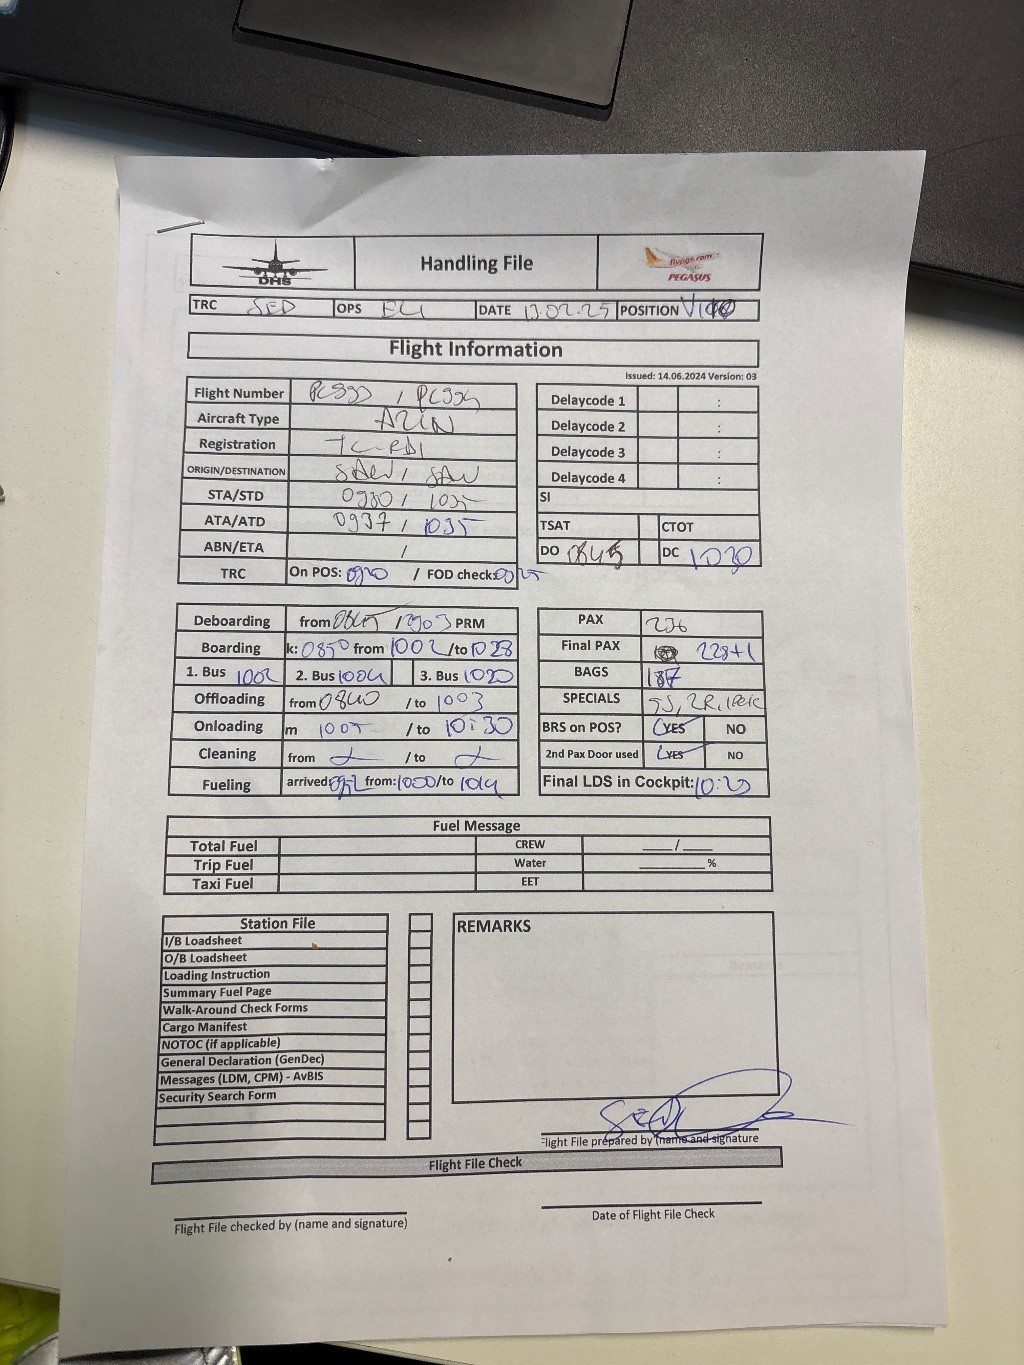 DHS
Handling File
flypgs.com
PEGASUS
TRC SED OPS DATE 13.02.25 POSITION
Flight Information
Issued: 14.06.2024 Version: 03
Flight Number /
Aircraft Type A21N
Registration
ORIGIN/DESTINATION SAW / SAW
STA/STD / 1035
ATA/ATD 0937 / 1035
ABN/ETA /
TRC On POS: / FOD check:
Delaycode 1 :
Delaycode 2 :
Delaycode 3 :
Delaycode 4 :
SI
TSAT CTOT
DO 0845 DC 1030
Deboarding from / PRM
Boarding k: 0850 from 1002 /to 1028
1. Bus 1002 2. Bus 1004 3. Bus 1020
Offloading from 0840 / to 1003
Onloading m 1005 / to 10:30
Cleaning from / to
Fueling arrived: from: 1000 /to 1014
PAX 236
Final PAX 228+1
BAGS 187
SPECIALS
BRS on POS? YES NO
2nd Pax Door used YES NO
Final LDS in Cockpit:
Fuel Message
Total Fuel CREW ___/___
Trip Fuel Water ______%
Taxi Fuel EET
Station File
I/B Loadsheet
O/B Loadsheet
Loading Instruction
Summary Fuel Page
Walk-Around Check Forms
Cargo Manifest
NOTOC (if applicable)
General Declaration (GenDec)
Messages (LDM, CPM) - AvBIS
Security Search Form
REMARKS
Flight File prepared by (name and signature
Flight File Check
Flight File checked by (name and signature)
Date of Flight File Check